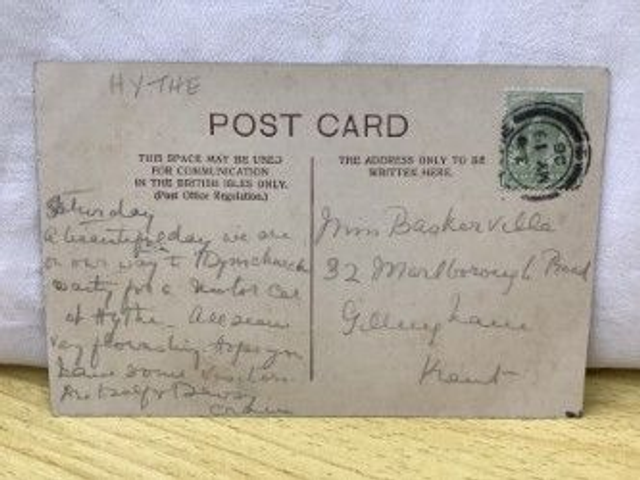 HYTHE
POST CARD
THIS SPACE MAY BE USED
FOR COMMUNICATION
IN THE BRITISH ISLES ONLY.
(Post Office Regulation.)
THE ADDRESS ONLY TO BE
WRITTEN HERE.
MY 19
06
Saturday
A beautiful day we are
on our way to Dymchurch
waiting for a motor car
at Hythe. All seem
very flourishing hope you
have some visitors
Miss Baskerville
32 Marlborough Road
Gillingham
Kent